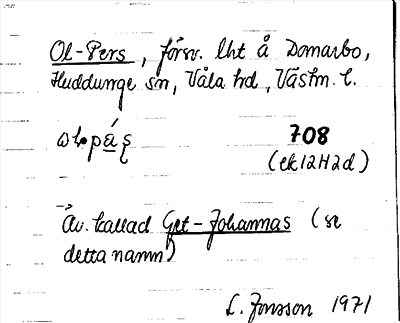 Ol-Pers, försv. lht å Domarbo,
Huddunge sn, Våla hd, Västm. l.
708
(ek 12H2d)
Äv. kallad Get-Johannas (se
detta namn)
L. Jonsson 1971